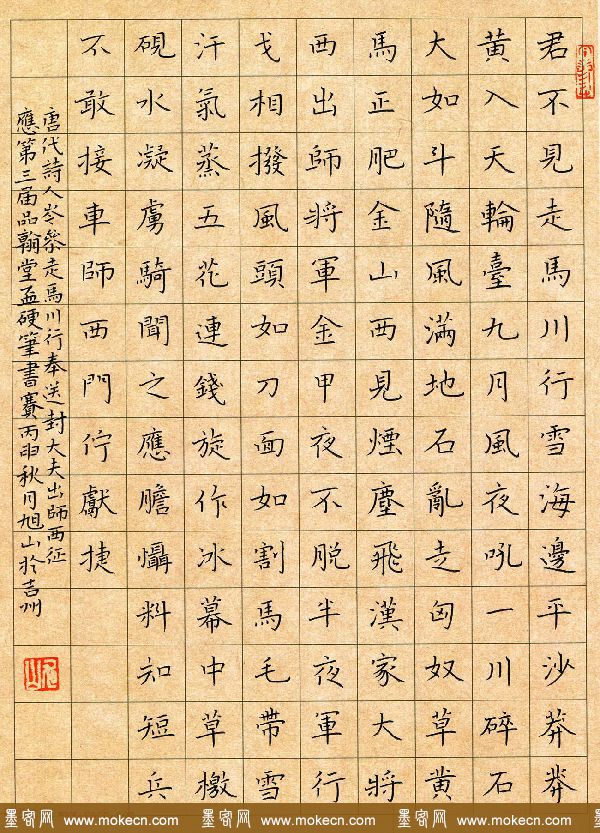 君不見走馬川行雪海邊平沙莽莽
黄入天輪臺九月風夜吼一川碎石
大如斗隨風滿地石亂走匈奴草黄
馬正肥金山西見煙塵飛漢家大將
西出師將軍金甲夜不脱半夜軍行
戈相撥風頭如刀面如割馬毛帶雪
汗氣蒸五花連錢旋作冰幕中草檄
硯水凝虜騎聞之應膽懾料知短兵
不敢接車師西門佇獻捷
唐代詩人岑參走馬川行奉送封大夫出師西征
應第三届品翰堂盃硬筆書賽丙申秋月旭山於吉州
墨客网 www.mokecn.com 墨客网 www.mokecn.com 墨客网 www.mokecn.com